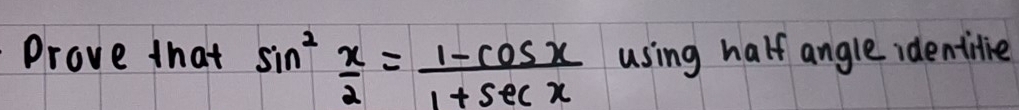 Prove that sin² x/2 = (1 - cos x)/(1 + sec x) using half angle identitie